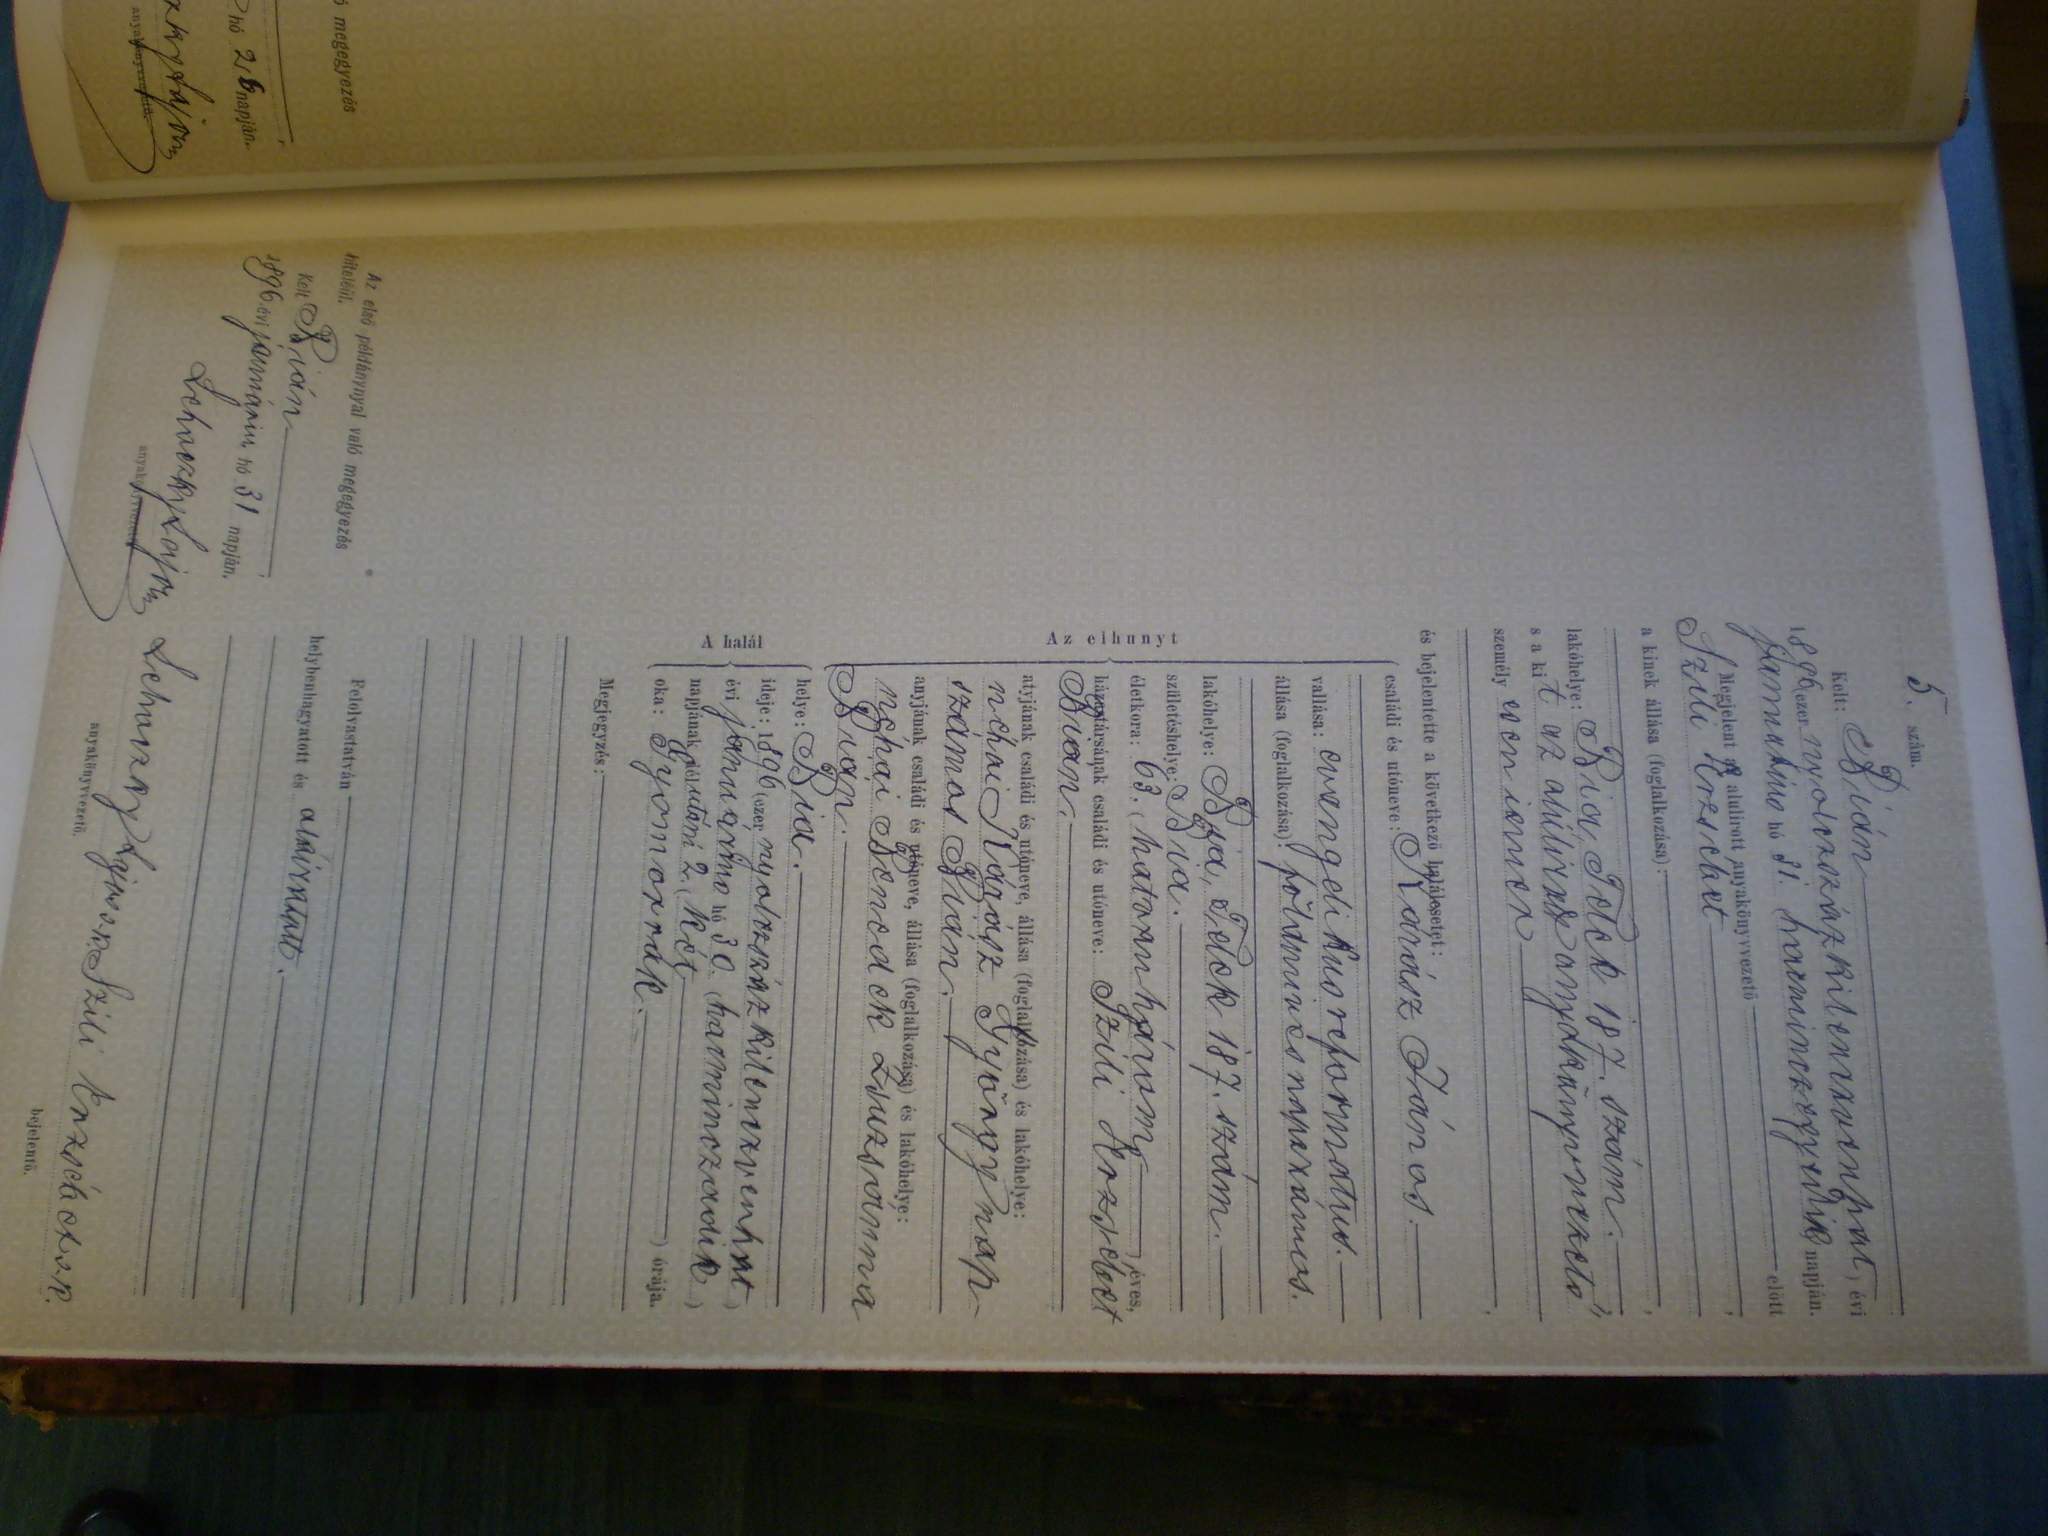 ó megegyezés
hó 28 napján.
5. szám.
Kelt: Bián
1896 (ezer nyolczszáz kilenczvenhat) évi
januárius hó 31. harminczegyedik napján.
Megjelent az alulirott anyakönyvvezető előtt
Szili Erzsébet
a kinek állása (foglalkozása):
lakóhelye: Bia, Telek 187. szám.
s a kit az alulirott anyakönyvvezető
személyesen ismer
és bejelentette a következő halálesetet:
családi és utóneve: Kárász János.
vallása: evangelikus reformatus.
állása (foglalkozása): földmives napszámos.
lakóhelye: Bia, Telek 187. szám.
születéshelye: Bia.
életkora: 63. (hatvanhárom) éves,
házastársának családi és utóneve: Szili Erzsébet
Bián.
atyjának családi és utóneve, állása (foglalkozása) és lakóhelye:
néhai Kárász György nap-
számos Bián.
anyjának családi és utóneve, állása (foglalkozása) és lakóhelye:
néhai Bencdek Zsuzsanna
Bián.
Az elhunyt
helye: Bia.
ideje: 1896 (ezer nyolczszáz kilenczvenhat)
évi januárius hó 30. (harminczadik)
napjának délutáni 2. (két) órája.
oka: Gyomorrák.
A halál
Megjegyzés:
Felolvastatván
helybenhagyatott és aláiratott.
anyakönyvvezető.
Szili Erzsébet s.k.
bejelentő.
Az első példánynyal való megegyezés
hiteléül.
Kelt Bián
1896. évi januáriu hó 31 napján.
anyakönyvvezető